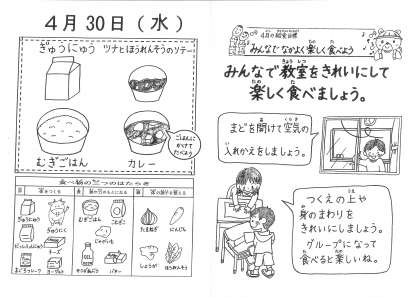 4月30日（水）
ぎゅうにゅう ツナとほうれんそうのソテー
むぎごはん カレー
ごはんに
かけて
たべよう
食べ物の三つのはたらき
ぎゅうにゅう
ぎゅうにく
チーズ
ヨーグルト
むぎごはん
じゃがいも
バター
たまねぎ
にんじん
しょうが
ほうれんそう
4月の給食目標
みんなでなかよく楽しく食べよう
みんなで教室をきれいにして
楽しく食べましょう。
まどを開けて空気の
入れかえをしましょう。
つくえの上や
身のまわりを
きれいにしましょう。
グループになって
食べると楽しいね。